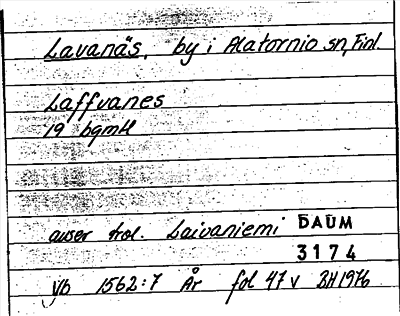 Lavanäs, by i Alatornio sn, Finl.
Laffvanes
19 bgmH
avser trol. Laivaniemi DAUM
3174
Vb 1562:7 År fol 47 v BH 1976